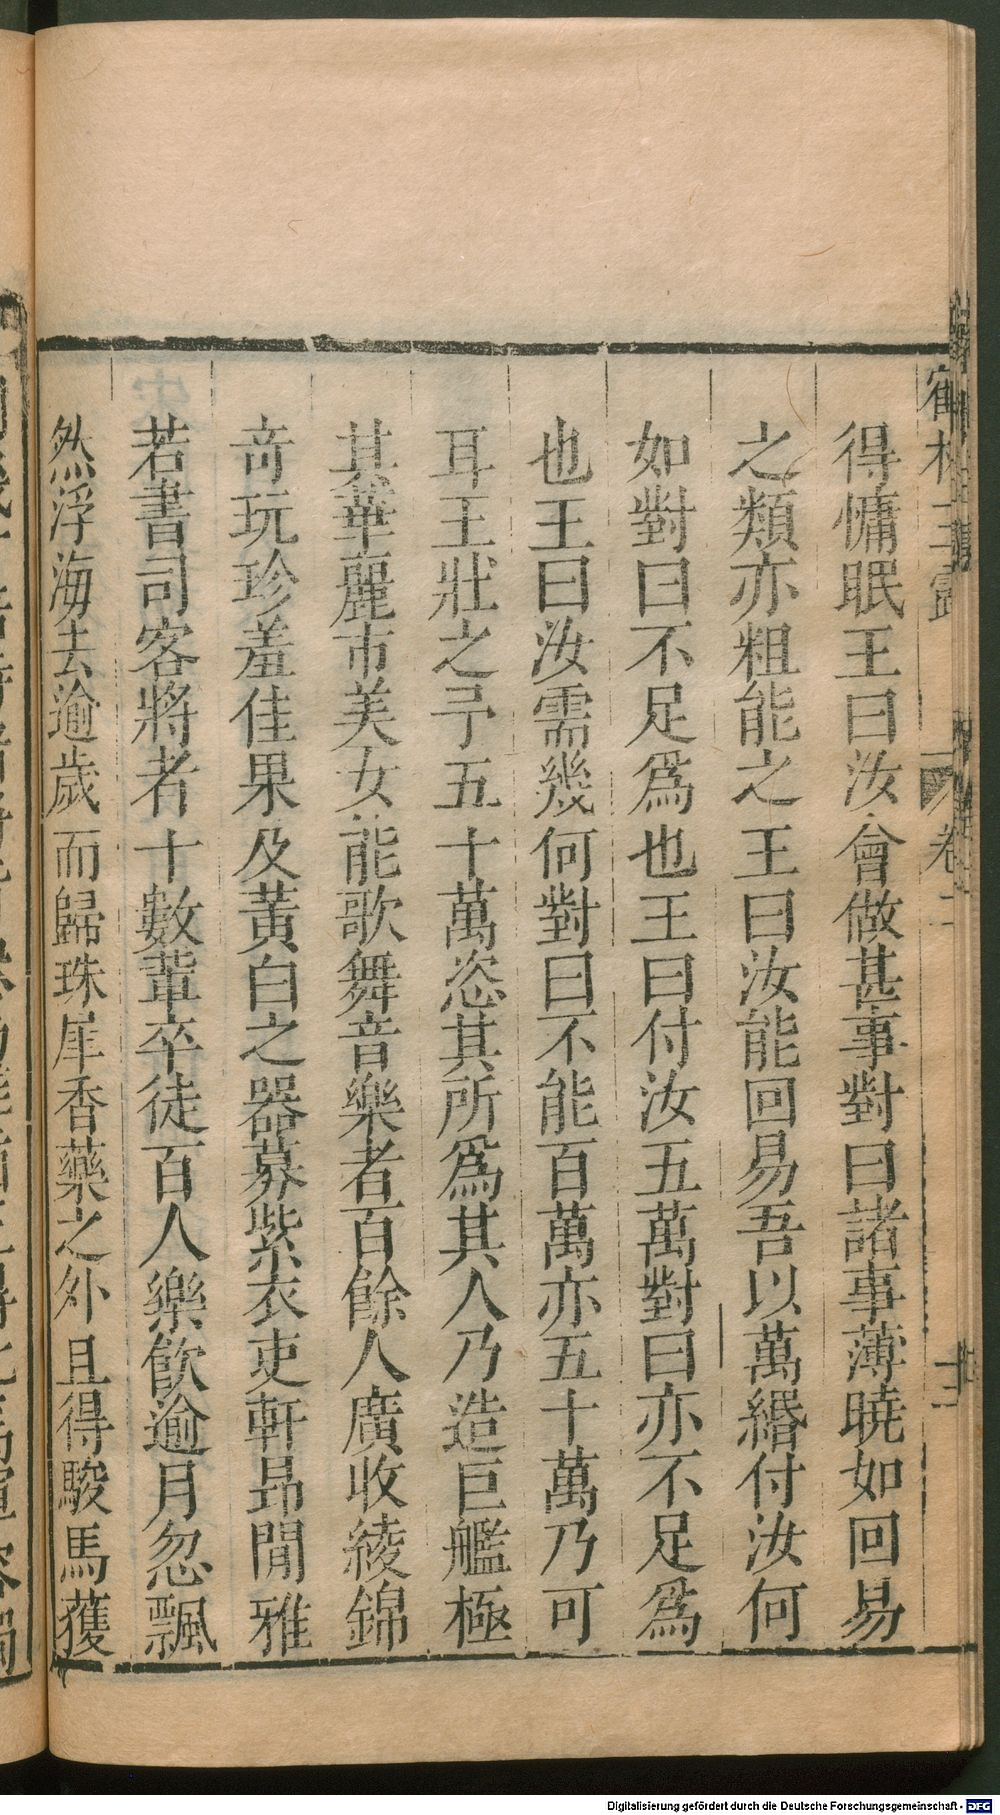 得慵眠王曰汝會做甚事對曰諸事薄曉如回易
之類亦粗能之王曰汝能回易吾以萬緡付汝何
如對曰不足爲也王曰付汝五萬對曰亦不足爲
也王曰汝需幾何對曰不能百萬亦五十萬乃可
耳王壯之予五十萬恣其所爲其人乃造巨艦極
其華麗市美女能歌舞音樂者百餘人廣收綾錦
奇玩珍羞佳果及黃白之器募紫衣吏軒昂閒雅
若書司客將者十數輩卒徒百人樂飲逾月忽飄
然浮海去逾歲而歸珠犀香藥之外且得駿馬獲
Digitalisierung gefördert durch die Deutsche Forschungsgemeinschaft - DFG